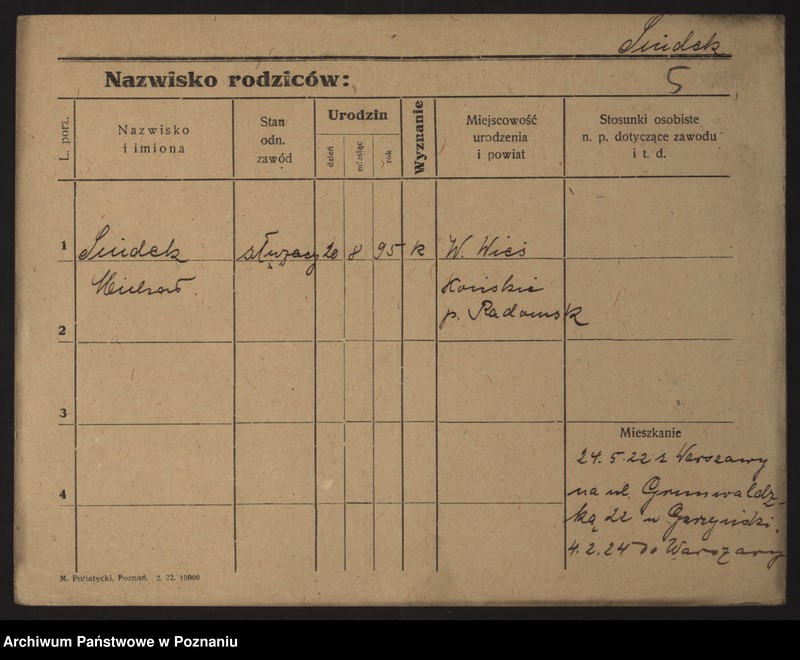 Siudek
5
Nazwisko rodziców:
L. porz.
Nazwisko
i imiona
Stan
odn.
zawód
Urodzin
dzień
miesiąc
rok
Wyznanie
Miejscowość
urodzenia
i powiat
Stosunki osobiste
n. p. dotyczące zawodu
i t. d.
1 Siudek służący 20 8 95 k W. Wieś
Michał
Końskie
p. Radomsk
2
3
Mieszkanie
24.5.22 z Warszawy
na ul. Grunwaldz-
ką 22 u
4
4.2.24 do Warszawy
M. Putiatycki, Poznań. 2. 22. 10000
Archiwum Państwowe w Poznaniu